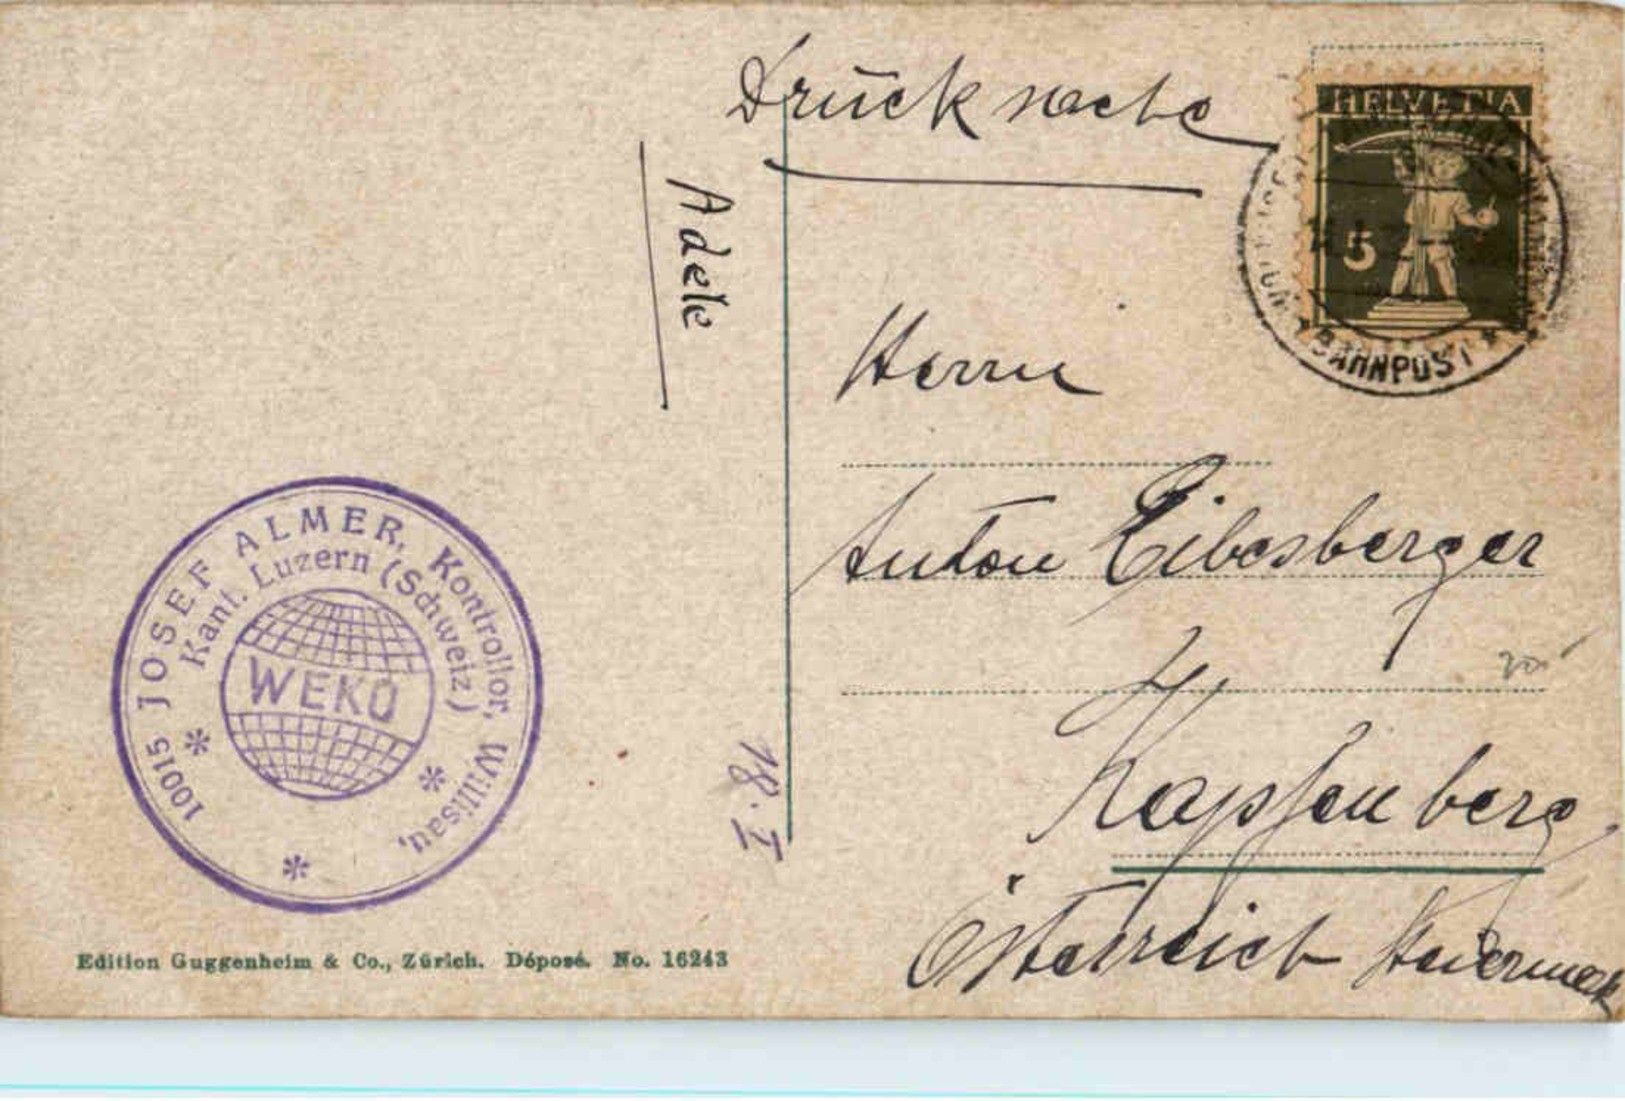 Drucksache
HELVETIA
5
BAHNPOST
Adele
Herrn
Anton Eibesberger
Kapfenberg
Österreich Steiermark
10015 JOSEF ALMER, Kontrollor, Willisau,
Kant. Luzern (Schweiz)
WEKO
18. I
Edition Guggenheim & Co., Zürich. Déposé. No. 16243